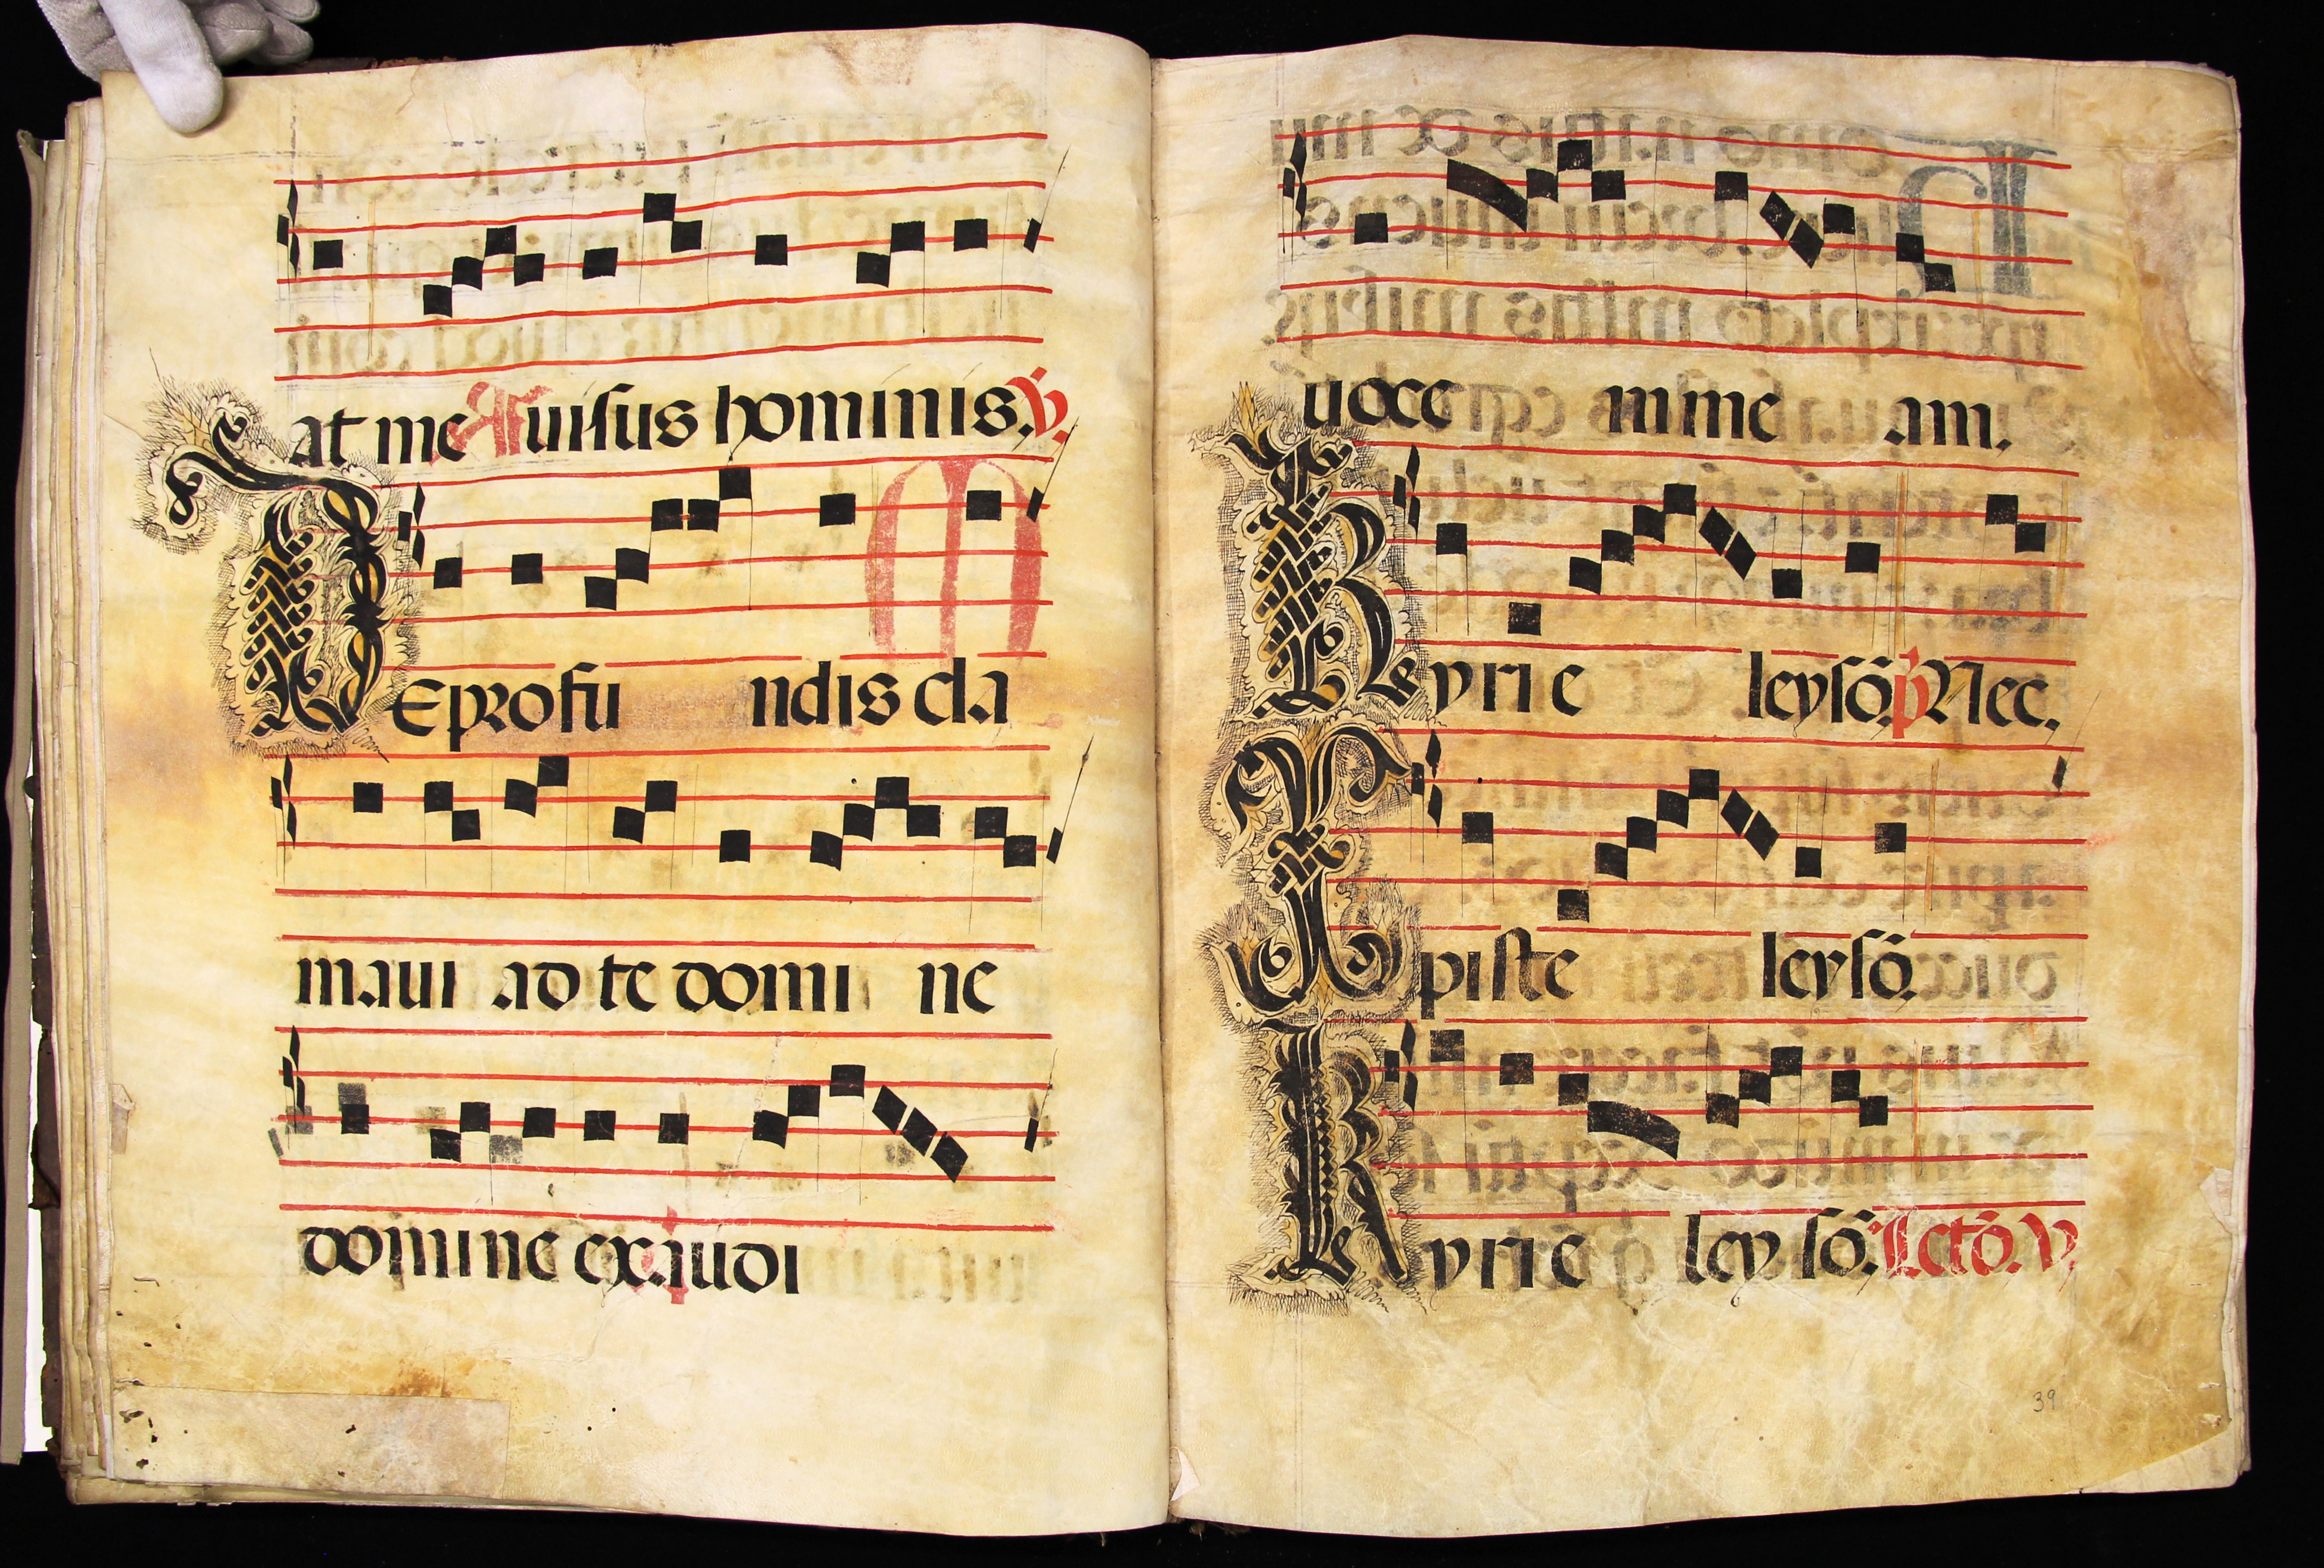 at me uisus hominis. V.
DE profu ndis cla
maui ad te domi ne
domine exaudi
uoce m me am.
Kyrie leysō. p Nec.
Xpiste leysō.
Kyrie leysō. Lctō. V.
39